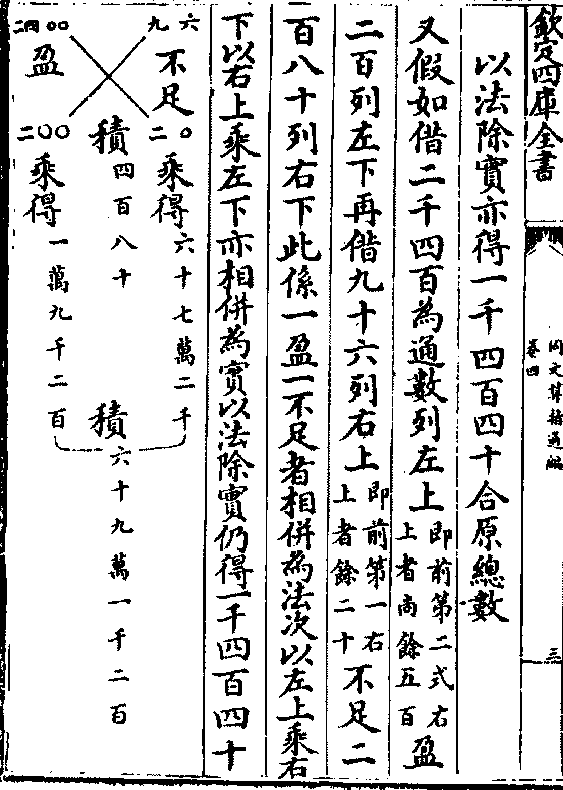 欽定四庫全書
同文算指通編
卷四
三
以法除實亦得一千四百四十合原總數
又假如借二千四百為通數列左上即前第二式右上者尚餘五百盈
二百列左下再借九十六列右上即前第一右上者餘二十不足二
百八十列右下此係一盈一不足者相併為法次以左上乘右
下以右上乘左下亦相併為實以法除實仍得一千四百四十
九六
不足
二〇
乘得六十七萬二千
積四百八十
積六十九萬一千二百
二四〇〇
盈
二〇〇
乘得一萬九千二百